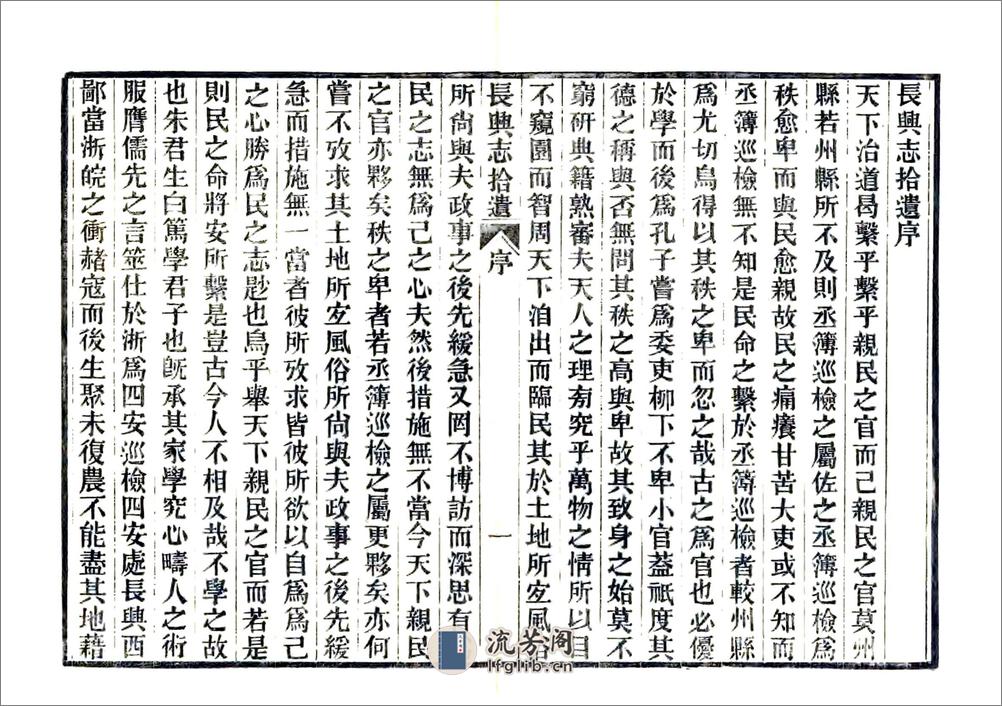 長興志拾遺序
天下治道曷繫乎繫乎親民之官而已親民之官莫州
縣若州縣所不及則丞簿巡檢之屬佐之丞簿巡檢爲
秩愈卑而與民愈親故民之痛癢甘苦大吏或不知而
丞簿巡檢無不知是民命之繫於丞簿巡檢者較州縣
爲尤切烏得以其秩之卑而忽之哉古之爲官也必優
於學而後爲孔子嘗爲委吏柳下不卑小官蓋祇度其
德之稱與否無問其秩之高與卑故其致身之始莫不
窮研典籍熟審夫天人之理有究乎萬物之情所以目
不窺園而智周天下洎出而臨民其於土地所宜風俗
長興志拾遺 序 一
所尙與夫政事之後先緩急又罔不博訪而深思有
民之志無爲己之心夫然後措施無不當今天下親民
之官亦夥矣秩之卑者若丞簿巡檢之屬更夥矣亦何
嘗不攷求其土地所宜風俗所尙與夫政事之後先緩
急而措施無一當者彼所攷求皆彼所欲以自爲爲己
之心勝爲民之志尟也烏乎舉天下親民之官而若是
則民之命將安所繫是豈古今人不相及哉不學之故
也朱君生白篤學君子也旣承其家學究心疇人之術
服膺儒先之言筮仕於浙爲四安巡檢四安處長興西
鄙當浙皖之衝赭寇而後生聚未復農不能盡其地藉
流芳閣
lfglib.cn